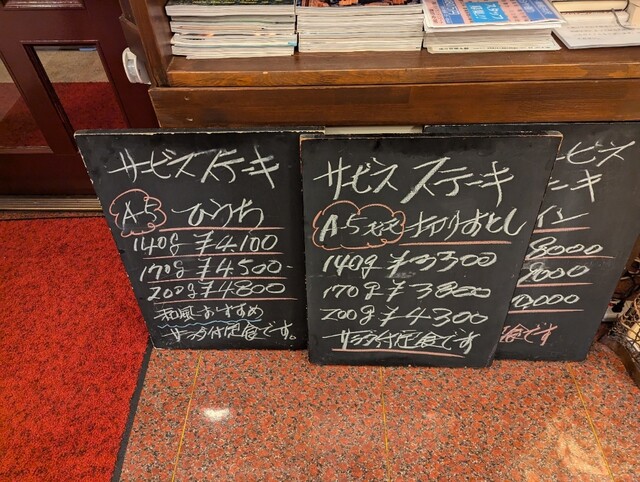 サービスステーキ
A-5 ひうち
140g ¥4100
170g ¥4500-
200g ¥4800
和風おすすめ
サラダ付定食です。
サービス ステーキ
A-5 切りおとし
140g ¥3300
170g ¥3800
200g ¥4300
サラダ付定食です
ービス
ーキ
イン
8000
9000
0,000
食です